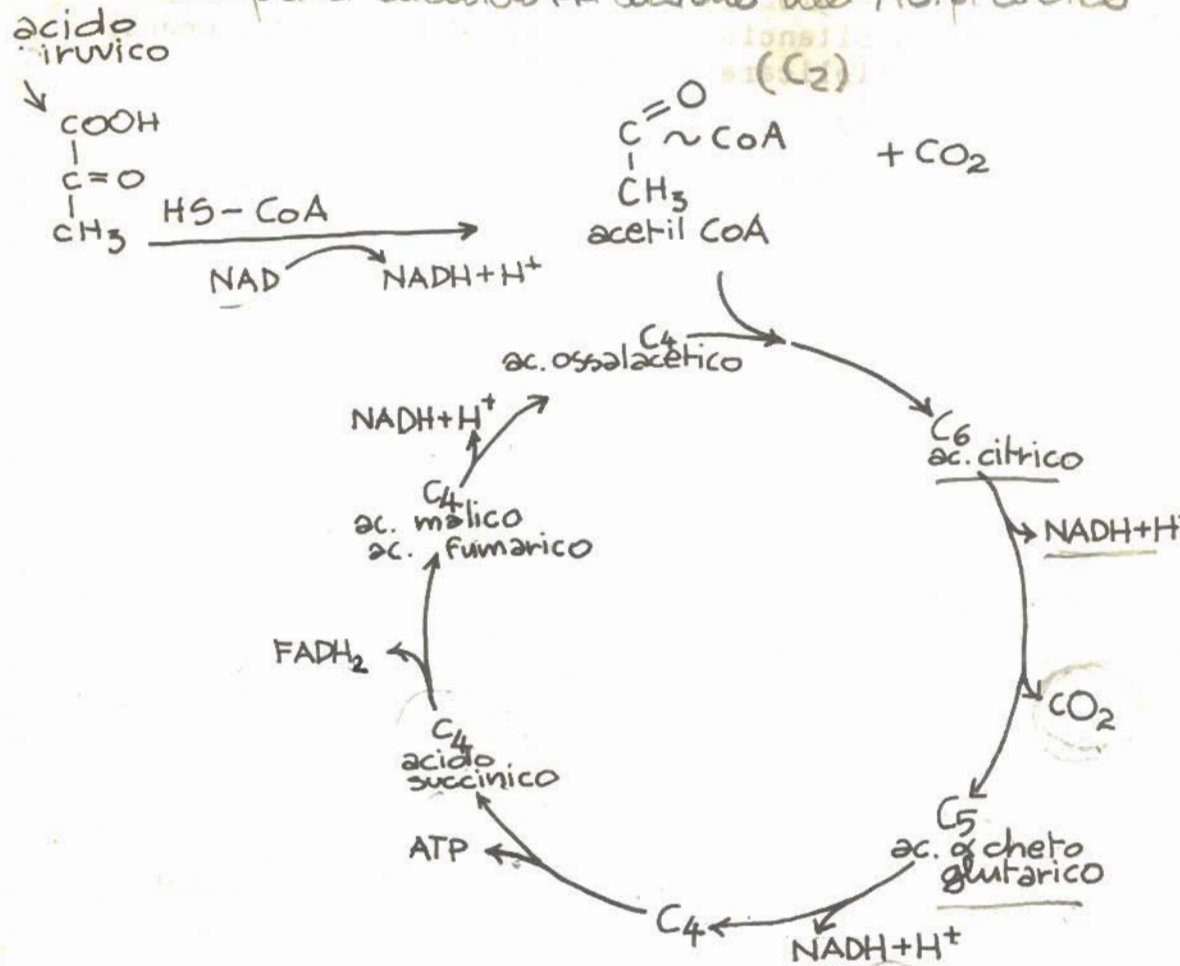 acido
iruvico
(C₂)
COOH
C=O
CH₃
HS-CoA
NAD
NADH+H⁺
C=O
~CoA
CH₃
acetil CoA
+ CO₂
C₄
ac. ossalacetico
C₆
ac. citrico
NADH+H⁺
CO₂
C₅
ac. α cheto
glutarico
NADH+H⁺
C₄
ATP
C₄
acido
succinico
FADH₂
C₄
ac. malico
ac. fumarico
NADH+H⁺